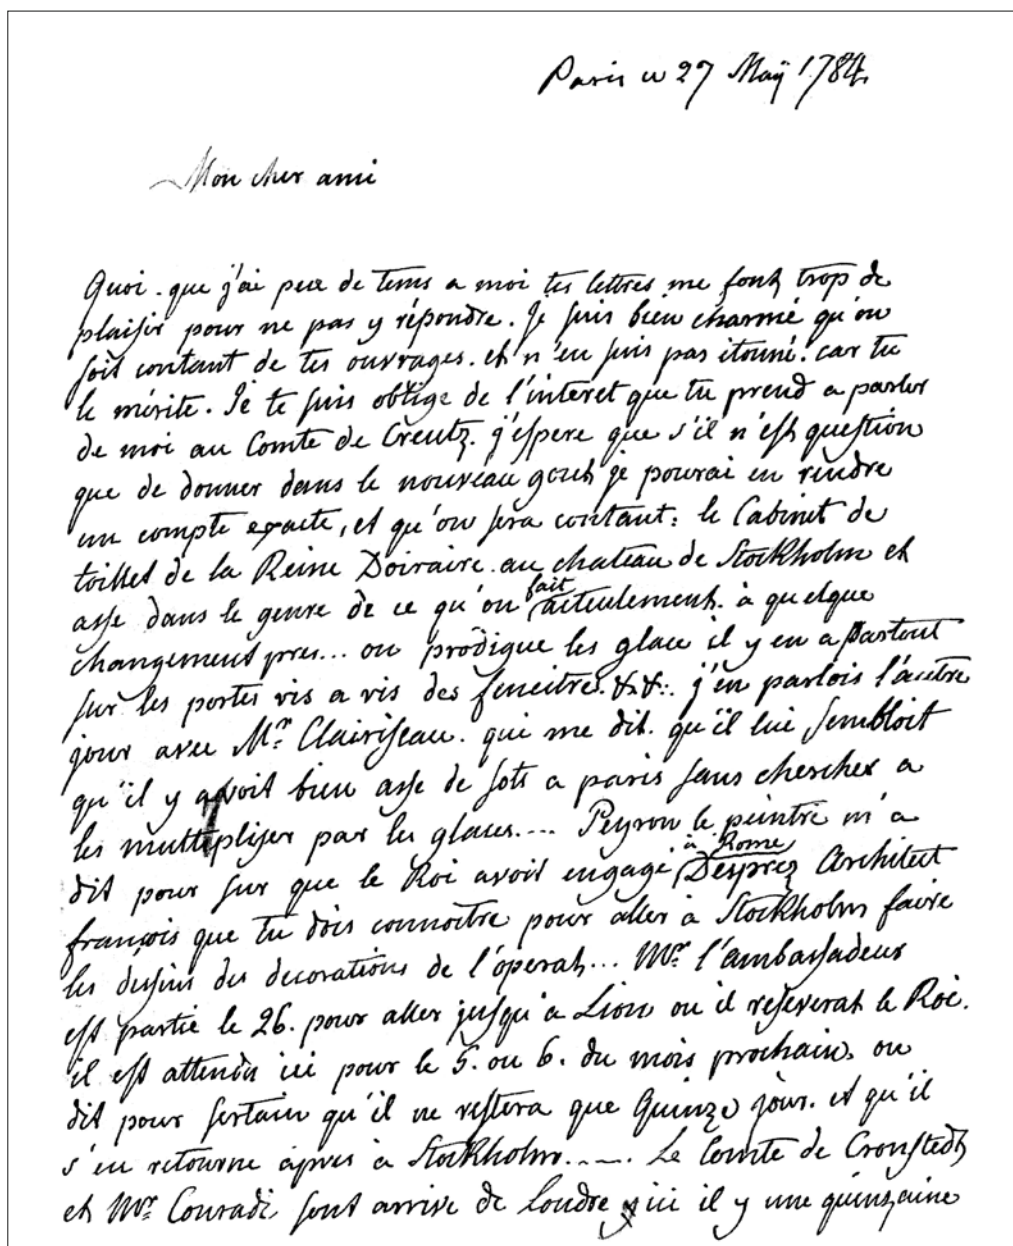 Paris ce 27 Maÿ 1784.
Mon cher ami
Quoi que j'ai peu de tems a moi tes lettres me font trop de
plaisir pour ne pas y répondre. Je suis bien charmé qu'on
soit contant de tes ouvrages. et n'en suis pas étonné. car tu
le mérite. Je te suis obligé de l'interet que tu prend a parler
de moi au Comte de Creutz. j'espere que s'il n'est question
que de donner dans le nouveau gout je pourai en rendre
un compte exacte, et qu'on sera contant: le Cabinet de
toillet de la Reine Doiraire au chateau de Stockholm et
asse dans le genre de ce qu'on fait acteulement. à quelque
changement pres... on prodigue les glace il y en a partout
sur les portes vis a vis des feneitre. &&. j'en parlois l'autre
jour avec Mr. Clairiseau. qui me dit. qu'il lui sembloit
qu'il y avoit bien asse de sots a paris sans chercher a
les multiplier par les glaces.... Peyron le peintre m'a
dit pour sur que le Roi avoit engagé à Rome Desprez Architect
françois que tu dois connoitre pour aller à Stockholm faire
les dessins des decorations de l'operat... Mr. l'ambassadeur
est partie le 26. pour aller jusqu'a Lion ou il reseverat le Roi.
il est attendu ici pour le 5. ou 6. du mois prochain, on
dit pour sertain qu'il ne restera que Quinze jour. et qu'il
s'en retourne après à Stockholm..... Le Comte de Cronstedt
et Mr. Conradi sont arrive de Londre ici il y une quinzaine